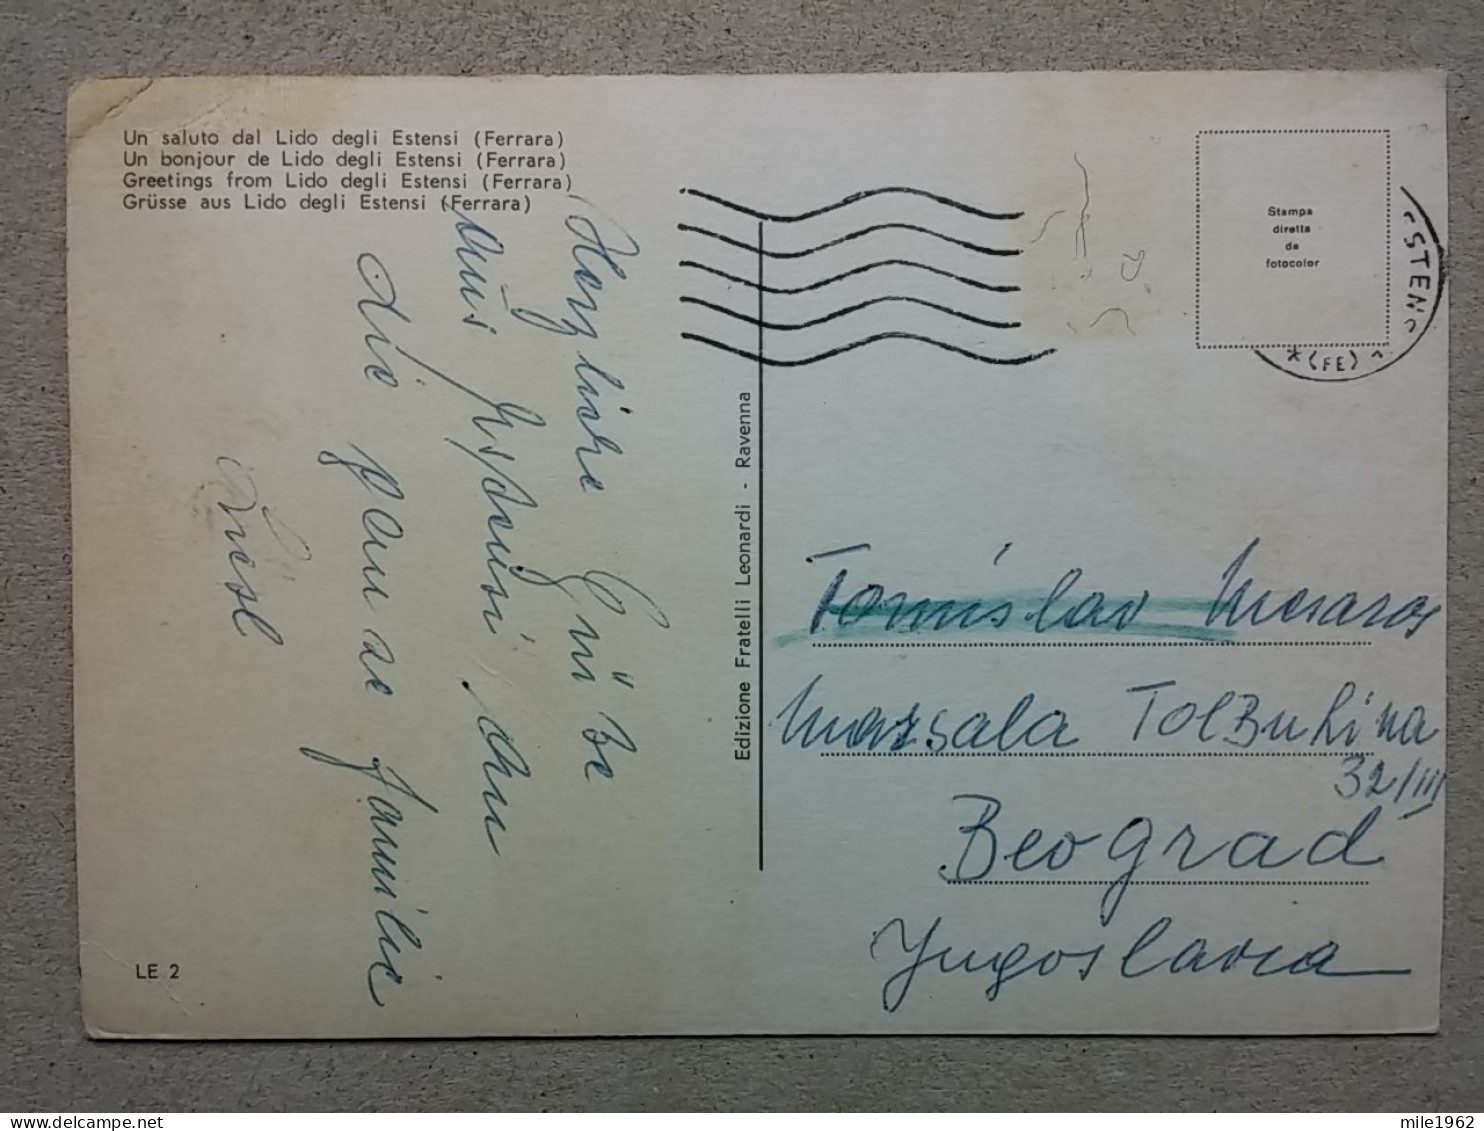 Un saluto dal Lido degli Estensi (Ferrara)
Un bonjour de Lido degli Estensi (Ferrara)
Greetings from Lido degli Estensi (Ferrara)
Grüsse aus Lido degli Estensi (Ferrara)
Herzliche Grüße
aus
die ganze Familie
LE 2
Edizione Fratelli Leonardi - Ravenna
Stampa
diretta
da
fotocolor
STEN
*(FE)
Tomislav Mesaros
Marsala Tolbuhina
32/III
Beograd
Yugoslavia
mile1962